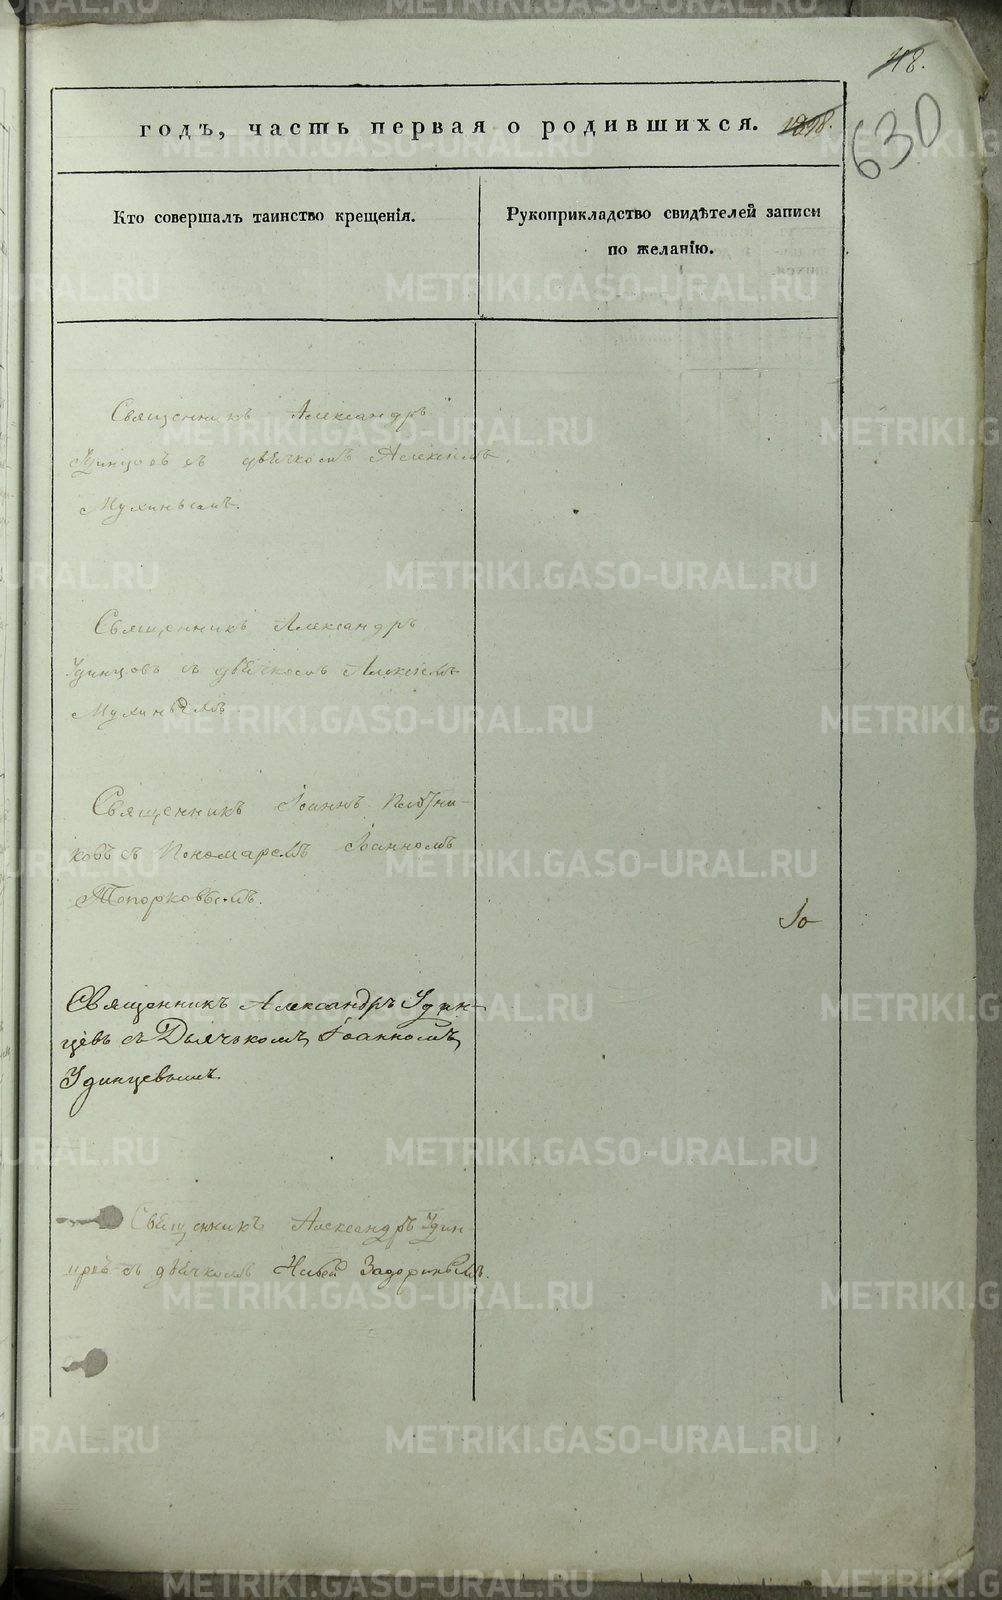 48.
годъ, часть первая о родившихся.
630
Кто совершалъ таинство крещенія.
Рукоприкладство свидѣтелей записи
по желанію.
Священникъ Александръ
Удинцовъ съ дьячкомъ Алексѣемъ
Мухинымъ.
Священникъ Александръ
Удинцовъ съ дьячкомъ Алексѣемъ
Мухинымъ
Священникъ Іоаннъ
ковъ съ Пономаремъ Іоанномъ
Топорковымъ.
Іо
Священникъ Александръ Удин-
цевъ съ Дьячькомъ Іоанномъ
Удинцевымъ
Священникъ Александръ Удин
съ дьячкомъ Задоринымъ.
METRIKI.GASO-URAL.RU